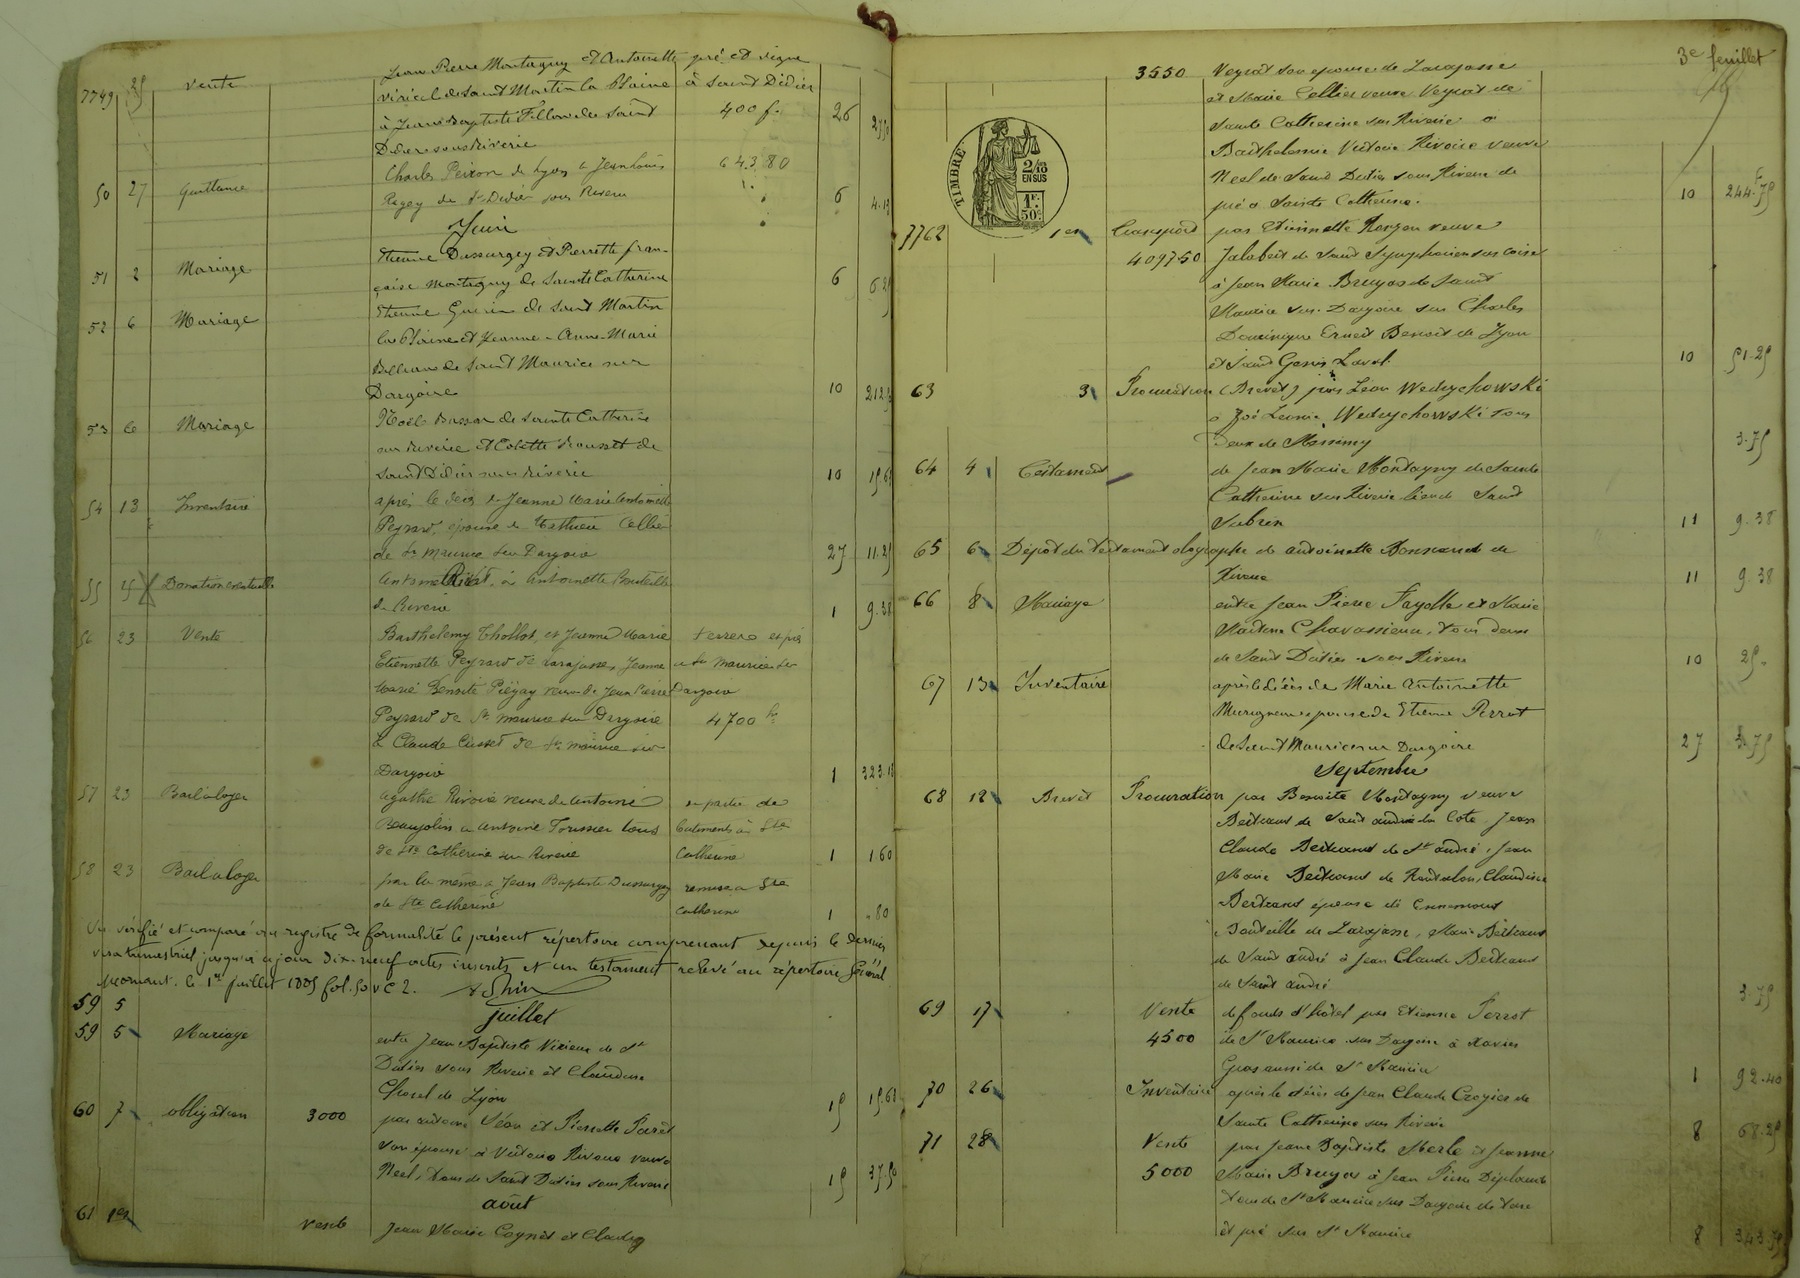 7749 25 Vente Jean Pierre Montagny et Antoinette pré et vigne
Viricel de Saint Martin la Plaine à Saint Didier
à Jean Baptiste Fillon de Saint 400 f. 26
Didier sous Riverie
50 27 Quittance Charles Peixon de Lyon à Jean Louis 643 80
Ragey de St Didier sous Riverie 6
Juin
51 2 Mariage Etienne Dussurgey et Pierrette fran-
çoise Montagny de Sainte Catherine 6
52 6 Mariage Etienne Guérin de Saint Martin
la Plaine et Jeanne-Anne-Marie
de Saint Maurice sur
Dargoire 10
53 6 Mariage Noël Bussod de Sainte Catherine
sur Riverie et Colette Brousset de
Saint Didier sous Riverie 10
54 13 Inventaire après le décès de Jeanne Marie Antoinette
Peyrard, épouse de Mathieu Cellier
de St Maurice sur Dargoire 27 11.25
55 15 Donation éventuelle Antoine à Antoinette Bouteille
de Riverie 1 9.38
56 23 Vente Barthélemy Thollot et Jeanne Marie terres et pré
Etiennette Peyrard de Larajasse, Jeanne à St Maurice sur
Marie Benoite Piégay veuve de Jean Pierre Dargoire
Peyrard de St Maurice sur Dargoire 4700 f
à Claude Cusset de St Maurice sur
Dargoire 1 323.13
57 23 Bail à loyer Agathe Rivoire veuve de Antoine partie de
Beaujolin à Antoine tous batiments à Ste
de Ste Catherine sur Riverie Catherine 1 1 60
58 23 Bail à loyer par la même à Jean Baptiste Dussurgey remise à Ste
de Ste Catherine Catherine 1 80
Vu vérifié et comparé au registre de formalité le présent répertoire comprenant depuis le dernier
visa trimestriel jusqu'à ce jour dix-neuf actes inscrits et un testament relevé au répertoire général
Mornant, le 1er juillet 1885 fol. 50 v C 2.
59 5 juillet
59 5 Mariage entre Jean Baptiste Virieux de St
Didier sous Riverie et Claudine
de Lyon 15 15.63
60 7 obligation 3000 par Antoine Séon et Pierrette
son épouse à Victoire Rivoire veuve
Néel, tous de Saint Didier sous Riverie 15 37.50
août
61 1er vente Jean Marie Cognet et Claudine
3e feuillet
3550 Veyrat son épouse de Larajasse
et Marie Cellier veuve Veyrat de
Sainte Catherine sur Riverie à
Barthélemie Victoire Rivoire veuve
Néel de Saint Didier sous Riverie de
pré à Sainte Catherine. 10 244.75
TIMBRE 2/10 EN SUS 1F. 50c.
7762 1er Transport par Etiennette veuve
4097 50 Jalabert de Saint Symphorien sur Coise
à Jean Marie Bruyas de Saint
Maurice sur Dargoire sur Charles
Dominique Ernest Benoit de Lyon
et Saint Genis Laval. 10 51.25
63 3 Procuration (Brevet) par Léon Wedrychowski
à Zoé Léonie Wedrychowski tous
deux de Messimy 3.75
64 4 Testament de Jean Marie Montagny de Sainte
Catherine sur Riverie lieu de Saint
11 9.38
65 6 Dépôt du testament olographe de Antoinette Bonnand de
Riverie 11 9.38
66 8 Mariage entre Jean Pierre Fayolle et Marie
Chavassieux, tous deux
de Saint Didier sous Riverie 10 25.
67 13 Inventaire après le décès de Marie Antoinette
épouse de Etienne Perrot
de Saint Maurice sur Dargoire 27 3.75
Septembre
68 12 Brevet Procuration par Benoite Montagny veuve
Bertrand de Saint André la Côte, Jean
Claude Bertrand de St André, Jean
Marie Bertrand de Rontalon, Claudine
Bertrand épouse de Ennemond
Bouteille de Larajasse, Marie Bertrand
de Saint André à Jean Claude Bertrand
de Saint André 3.75
69 17 Vente de fonds d'hôtel par Etienne Perrot
4500 de St Maurice sur Dargoire à Xavier
Gros aussi de St Maurice 1 92.40
70 26 Inventaire après le décès de Jean Claude Crozier de
Sainte Catherine sur Riverie 8 68.25
71 28 Vente par Jean Baptiste Merle et Jeanne
5000 Marie Bruyas à Jean Pierre
tous de St Maurice sur Dargoire de terre
et pré sur St Maurice 8 343.75